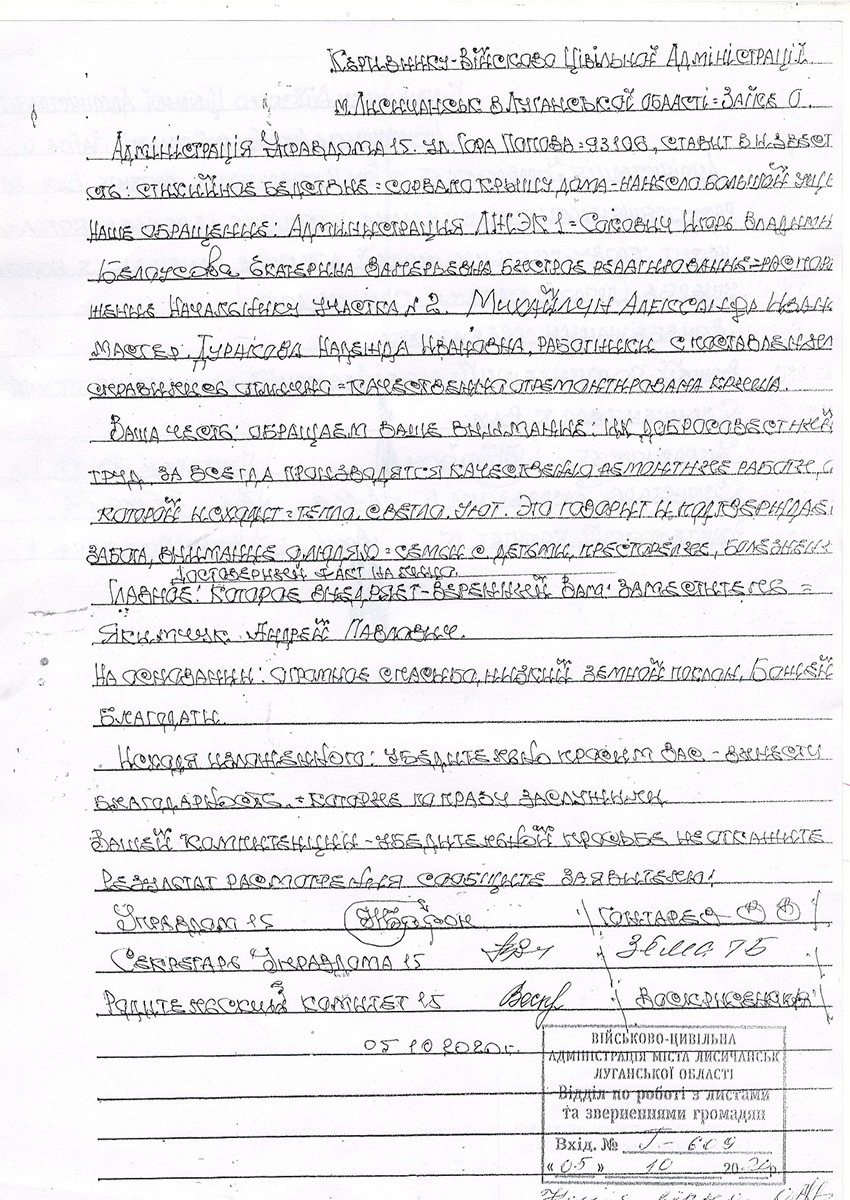 Керивнику-Військово Цівільної Адміністрації.
м. Лисичанськ в Луганської області = Заїке О.
Адміністрація Управдома 15. ул. Гора Попова = 93106, ставит в извест
ть: стихийное бедствие = сорвало крышу дома - нанесло большой уще
наше обращение: Администрация ЛЖЭК 1 = Сокович Игорь Владыми
Белоусова. Екатерина Валерьевна быстрое реагированние = распоря
жение Начальнику участка №2. Михайлин Александр Иван
мастер, Дуракова Надежда Ивановна, работники с поставленн
справились отлично = качественно отремонтирована крыша.
Ваша честь: обращаем ваше внимание: их добросовестный
труд, за всегда производятся качественно ремонтные работы, с
которой исходит = тепла, светла, уют. Это говорит и подтверждае
забота, внимание о людях = семьи с детьми, престарелые, болезнен
достоверный факт на лицо.
Главное: которое внедряет - веренный вам: заместителе =
Якимчук Андрей Павлович.
На основании: огромное спасибо, низкий земной поклон, Божей
благодати.
Исходя изложенного: убедительно просим вас - вынести
благодарность. = которые по праву заслужили
Вашей компитенции - убедительной просьбе не откажите
Результат расмотрения сообщите заявителю!
Управдом 15 /Гонтарев /
Секретарь Управдома 15 / Зёма ТБ
Родительский комитет 15 / Воскрисенская /
05 10 2020 г.
ВІЙСЬКОВО-ЦИВІЛЬНА
АДМІНІСТРАЦІЯ МІСТА ЛИСИЧАНСЬК
ЛУГАНСЬКОЇ ОБЛАСТІ
Відділ по роботі з листами
та зверненнями громадян
Вхід. № Г-609
« 05 » 10 2020 р.